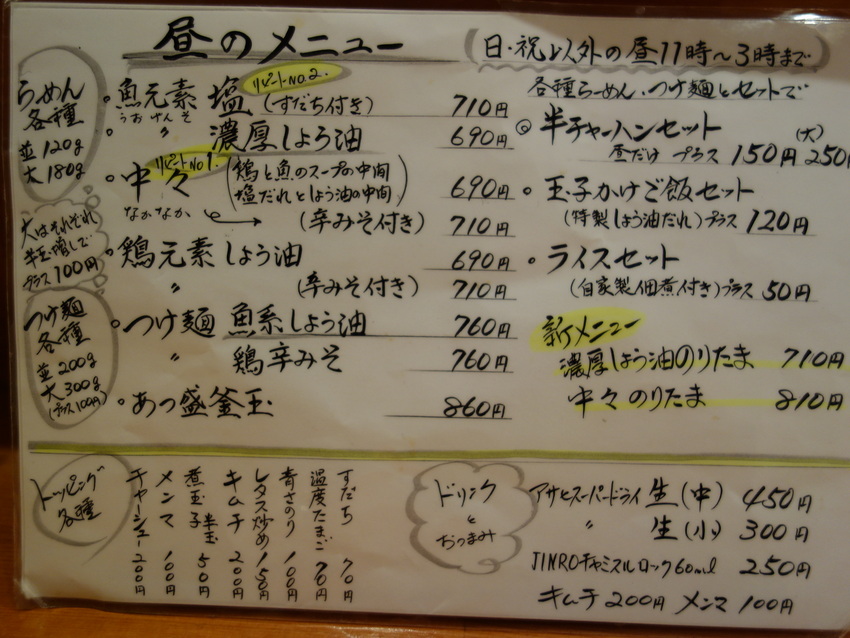 昼のメニュー
(日・祝以外の昼11時～3時まで)
らぁめん
各種
並120g
大180g
大はそれぞれ
半玉増しで
プラス100円
つけ麺
各種
並200g
大300g
(プラス100円)
リピートNO.2.
・魚元素 塩(すだち付き) 710円
うおげんそ
・〃 濃厚しょう油 690円
リピートNO1.
・中々(鶏と魚のスープの中間 塩だれとしょう油の中間) 690円
なかなか → (辛みそ付き) 710円
・鶏元素 しょう油 690円
〃 (辛みそ付き) 710円
・つけ麺 魚系しょう油 760円
〃 鶏辛みそ 760円
・あっ盛釜玉 860円
各種らーめん・つけ麺とセットで
◎半チャーハンセット
昼だけ プラス 150円 (大) 250円
・玉子かけご飯セット
(特製しょう油だれ)プラス 120円
・ライスセット
(自家製佃煮付き)プラス 50円
新メニュー
濃厚しょう油のりたま 710円
中々 のりたま 810円
トッピング
各種
チャーシュー 200円
メンマ 100円
煮玉子 半玉 50円
キムチ 200円
レタス炒め 150円
青さのり 100円
温度たまご 70円
すだち 70円
ドリンク
と
おつまみ
アサヒスーパードライ 生(中) 450円
〃 生(小) 300円
JINROチャミスル ロック60ml 250円
キムチ 200円 メンマ 100円